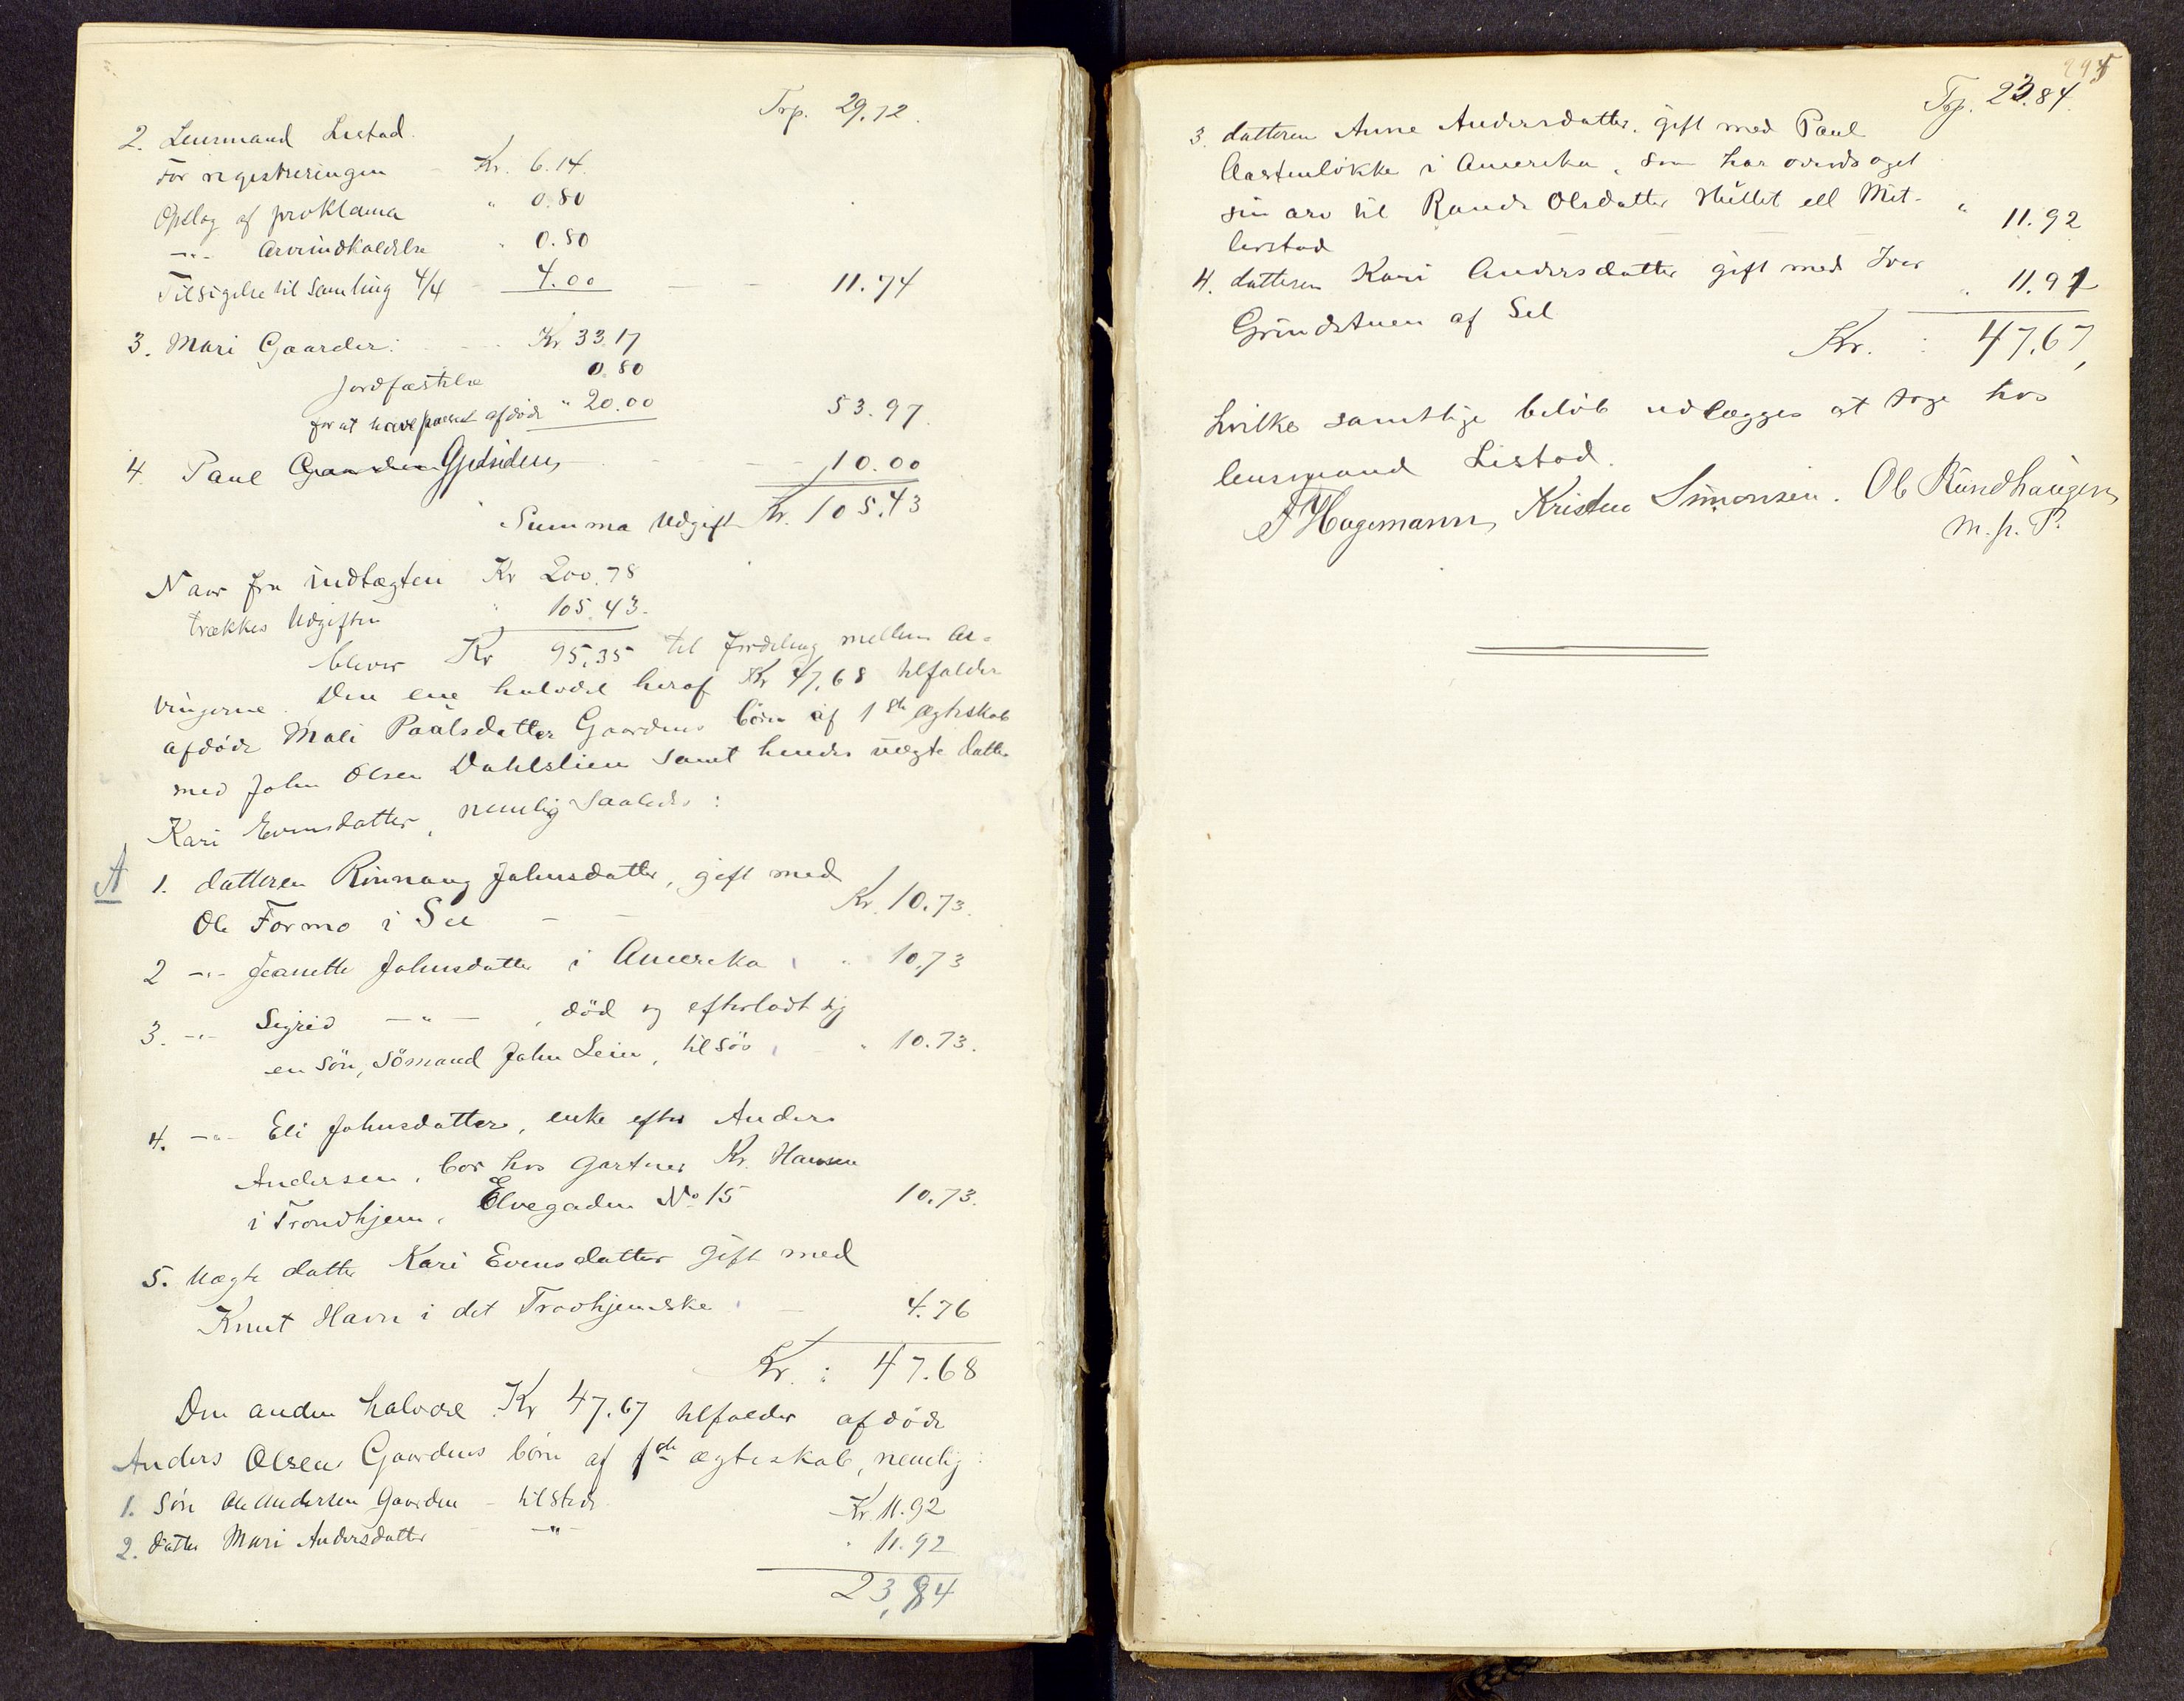 Trp. 29.72.
2. Lensmand Listad.
For registreringen - Kr. 6.14.
Opslag af proklama " 0.80
-"- Arveindkaldelse " 0.80
Tilsigelse til Samling 4/4 - 4.00 - - 11.74
3. Mari Gaarder: - - - Kr 33.17
Jordfæstelse 0.80
for at have passet afdöde " 20.00 53.97.
4. Paul Gjetsiden - - - 10.00
Summa Udgift Kr. 105.43
Naar fra indtægten Kr 200.78
trækkes Udgiften " 105.43.
bliver Kr 95,35 til fordeling mellem Ar-
vingerne. Den ene halvdel heraf Kr 47,68 tilfalder
afdöde Mali Paalsdatter Gaardens börn af 1ste ægteskab
med John Olsen Dahlslien samt hendes uægte datter
Kari Evensdatter, nemlig saaledes:
A 1. datteren Rinnaug Johnsdatter, gift med
Ole Formo i Sel - - Kr. 10.73.
2 -"- Jeanette Johnsdatter i Amerika " 10.73
3. -"- Sigrid -"-, död og efterladt sig
en sön, sömand John Lein, tilsös, - " 10.73.
4. -"- Eli Johnsdatter, enke efter Anders
Andersen, bor hos Gartner Kr. Hansen
i Trondhjem, Elvegaden No 15 10.73.
5. Uægte datter Kari Evensdatter gift med
Knut Havn i det Trondhjemske - 4.76
Kr. : 47.68
Den anden halvdel Kr 47.67 tilfalder afdöde
Anders Olsen Gaardens börn af 1ste ægteskab, nemlig:
1. Sön Ole Andersen Gaarden - tilstede Kr. 11.92
2. datter Mari Andersdatter -"- " 11.92
23,84
Trp. 23.84.
3. datteren Anne Andersdatter, gift med Paul
Aastenlökke i Amerika, som har overdraget
sin arv til Rande Olsdatter ell Mit-
lerstad - - - " 11.92
4. datteren Kari Andersdatter gift med Iver
Grindstuen af Sel " 11.91
Kr. : 47,67,
hvilke samtlige belöb udlægges at söge hos
lensmand Listad.
J Hagemann, Kristen Simonsen. Ole Rundhaugen
m. p. P.